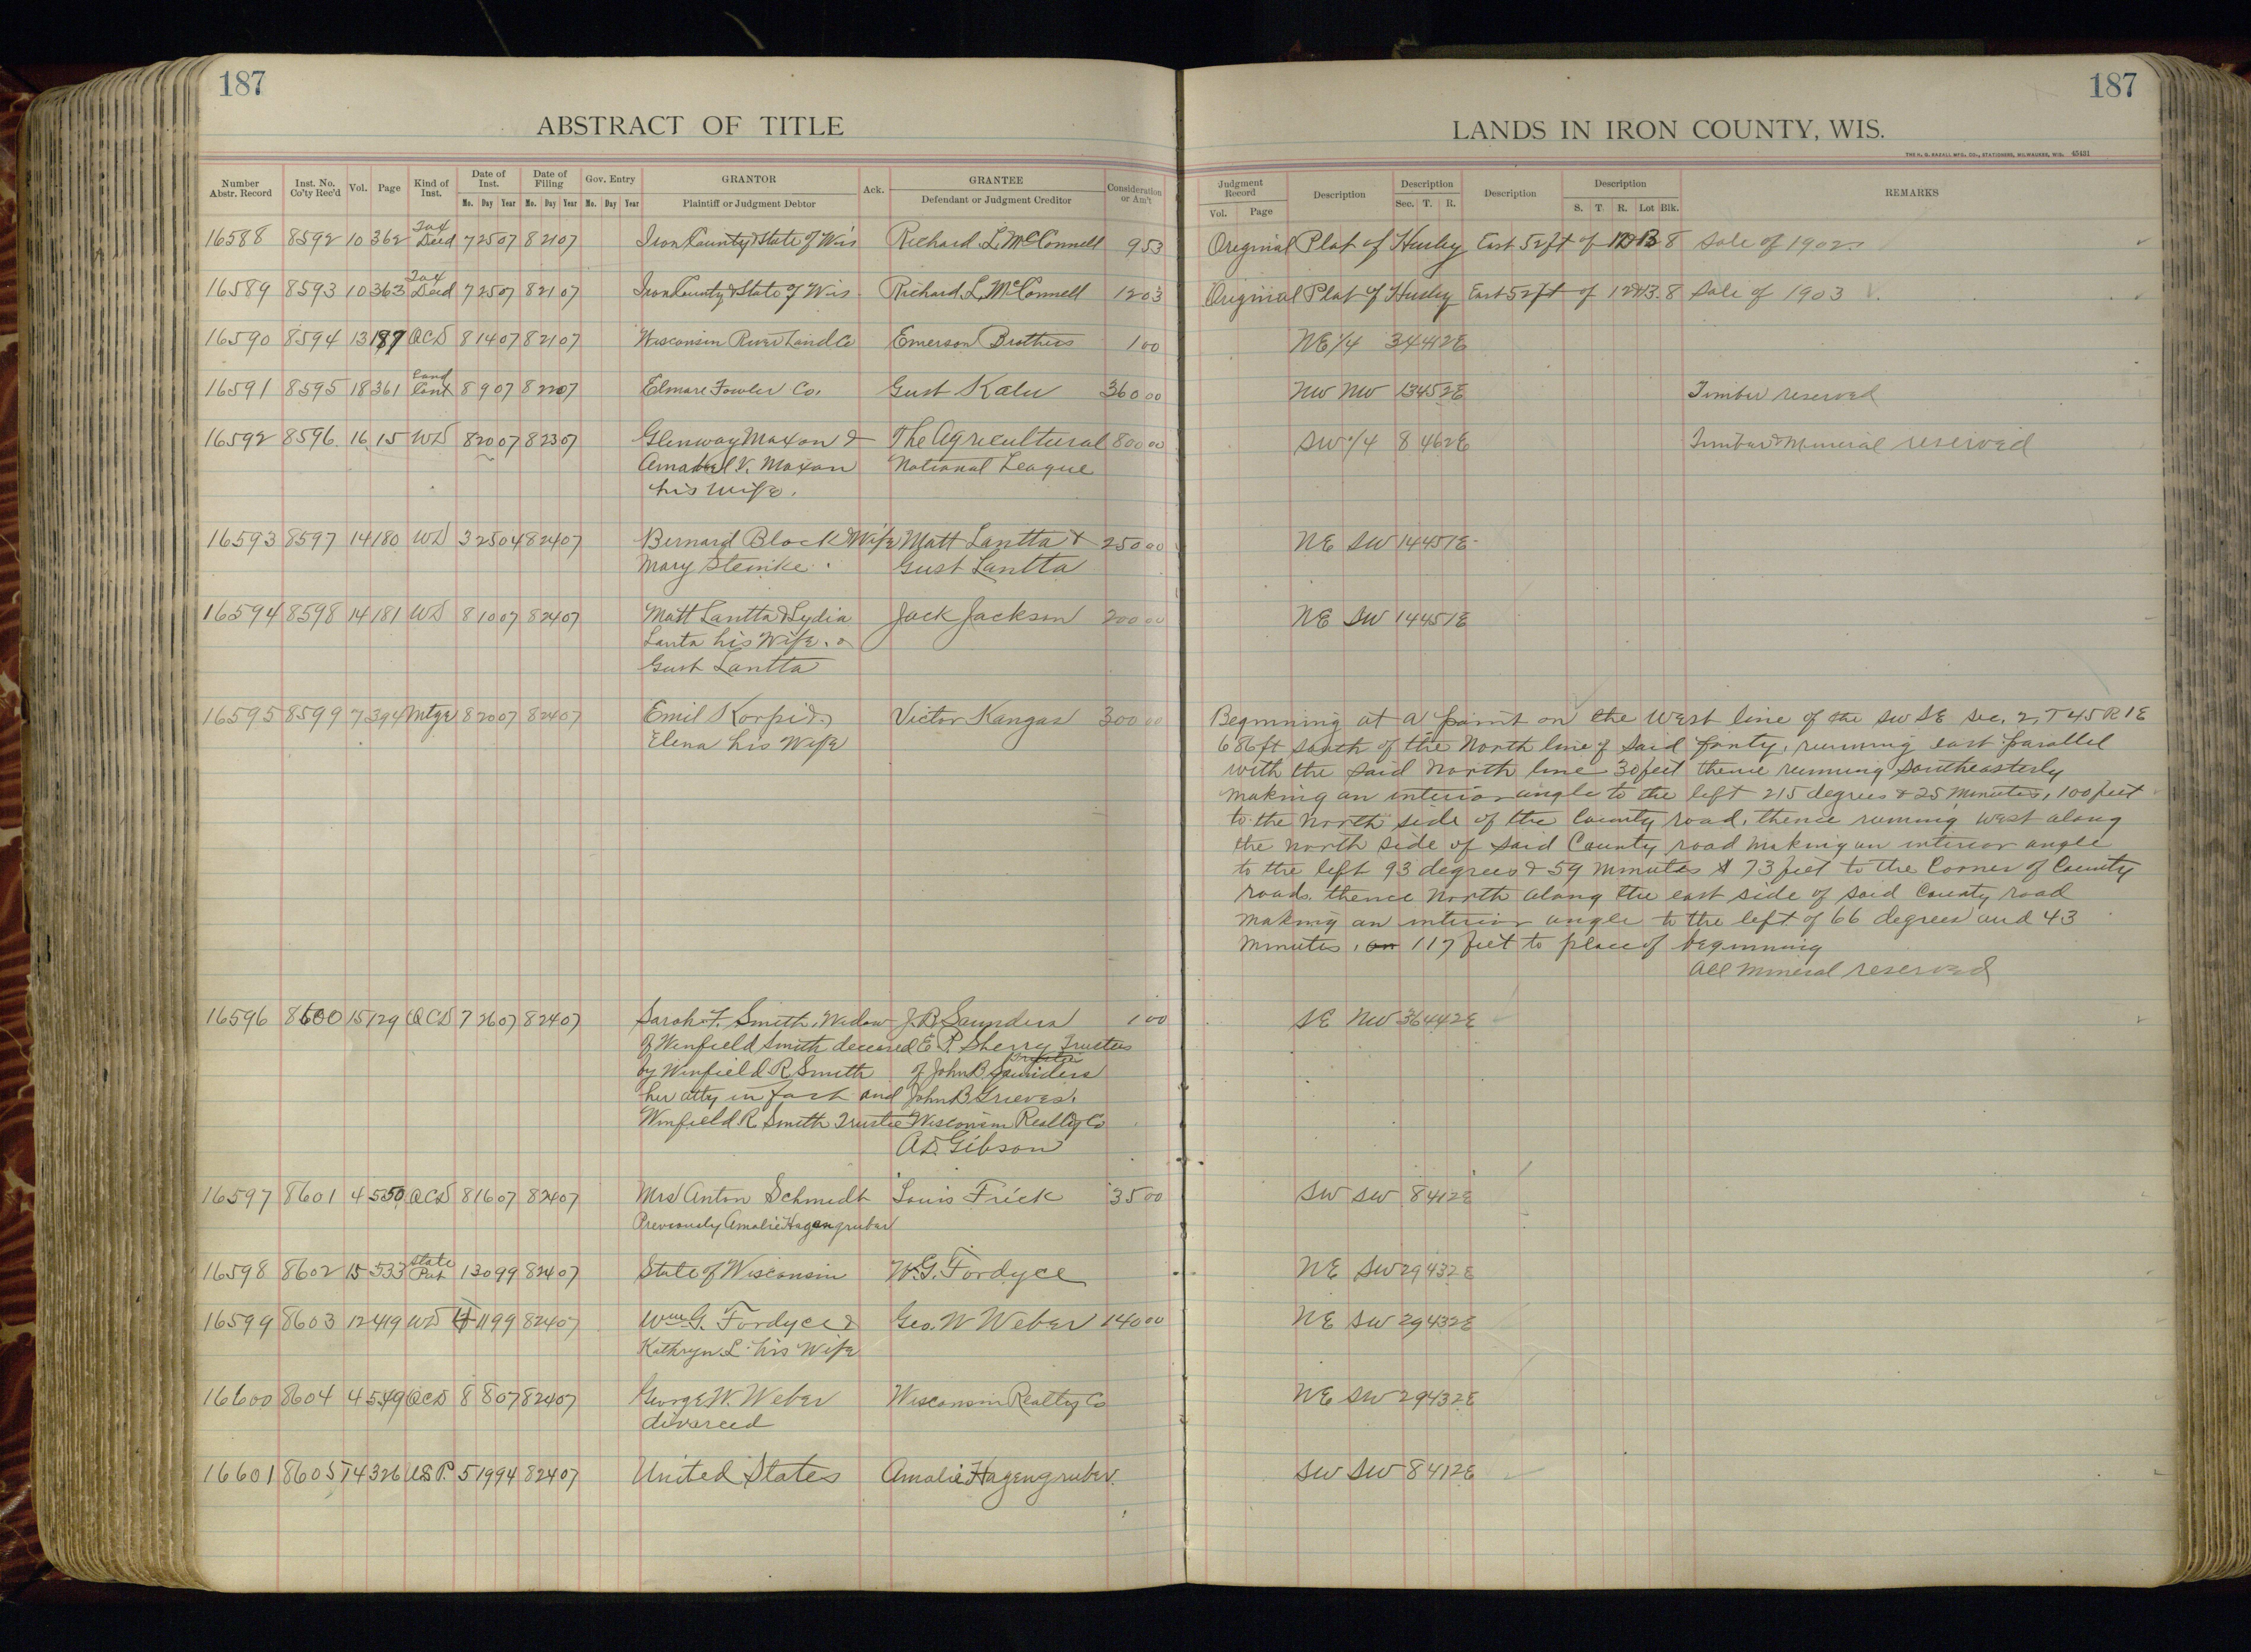 187
187
ABSTRACT OF TITLE
LANDS IN IRON COUNTY, WIS.
THE H. G. RAZALL MFG. CO., STATIONERS, MILWAUKEE, WIS. 45431
Number Abstr. Record | Inst. No. Co'ty Rec'd | Vol. | Page | Kind of Inst. | Date of Inst. Mo. Day Year | Date of Filing Mo. Day Year | Gov. Entry Mo. Day Year | GRANTOR Plaintiff or Judgment Debtor | Ack. | GRANTEE Defendant or Judgment Creditor | Consideration or Am't
Judgment Record Vol. Page | Description | Description Sec. T. R. | Description | Description S. T. R. Lot Blk. | REMARKS
16588 8592 10 362 Tax Deed 7 25 07 8 21 07 Iron County & State of Wis Richard L. McConnell 9 53 Original Plat of Hurley East 52 ft of 12 & 13 8 Sale of 1902
16589 8593 10 363 Tax Deed 7 25 07 8 21 07 Iron County & State of Wis. Richard L. McConnell 12 03 Original Plat of Hurley East 52 ft of 12 & 13. 8 Sale of 1903
16590 8594 13 187 QCD 8 14 07 8 21 07 Wisconsin River Land Co Emerson Brothers 1 00 NE 1/4 34 41 2E
16591 8595 18 361 Land Cont 8 9 07 8 22 07 Elmore Fowler Co. Gust Kalu 360 00 NW NW 13 45 2E Timber reserved
16592 8596 16 15 WD 8 20 07 8 23 07 Glenway Maxon & The Agricultural 800 00 SW 1/4 8 46 2E Timber & Mineral reserved
Amabel V. Maxon National League
his wife.
16593 8597 14 180 WD 3 25 04 8 24 07 Bernard Block Wife Matt Lantta & 250 00 NE SW 14 45 1E
Mary Stemke. Gust Lantta
16594 8598 14 181 WD 8 10 07 8 24 07 Matt Lantta & Lydia Jack Jackson 200 00 NE SW 14 45 1E
Lanta his Wife. &
Gust Lantta
16595 8599 7 394 Mtge 8 20 07 8 24 07 Emil Korpi & Victor Kangas 300 00 Beginning at a point on the West line of the SW SE Sec. 2, T 45 R 1E
Elena his Wife 686 ft south of the North line of said forty, running east parallel
with the said North line 30 feet thence running Southeasterly
making an interior angle to the left 215 degrees & 25 minutes, 100 feet
to the North side of the County road, thence running west along
the north side of said County road making an interior angle
to the left 93 degrees & 59 minutes 73 feet to the Corner of County
roads. thence North along the east side of said County road
making an interior angle to the left of 66 degrees and 43
minutes, on 117 feet to place of beginning
All Mineral reserved
16596 8600 15 129 QCD 7 26 07 8 24 07 Sarah F. Smith, Widow J. B. Saunders 1 00 SE NW 36 44 2E
of Winfield Smith deceased E. P. Sherry Trustees
by Winfield R Smith of John B. Saunders
her atty in fact and John B Grieves.
Winfield R. Smith Trustee Wisconsin Realty Co
A.D. Gibson
16597 8601 4 550 QCD 8 16 07 8 24 07 Mrs Anton Schmidt Louis Frick 35 00 SW SW 8 41 2E
Previously Amalie Hagengruber
16598 8602 15 533 State Pat 1 30 99 8 24 07 State of Wisconsin W. G. Fordyce NE SW 29 43 2E
16599 8603 12 419 WD 4 11 99 8 24 07 Wm. G. Fordyce & Geo. W Weber 140 00 NE SW 29 43 2E
Kathryn L. his Wife
16600 8604 4 549 QCD 8 8 07 8 24 07 George W. Weber Wisconsin Realty Co NE SW 29 43 2E
divorced
16601 8605 14 326 U.S P. 5 19 94 8 24 07 United States Amalie Hagengruber. SW SW 8 41 2E